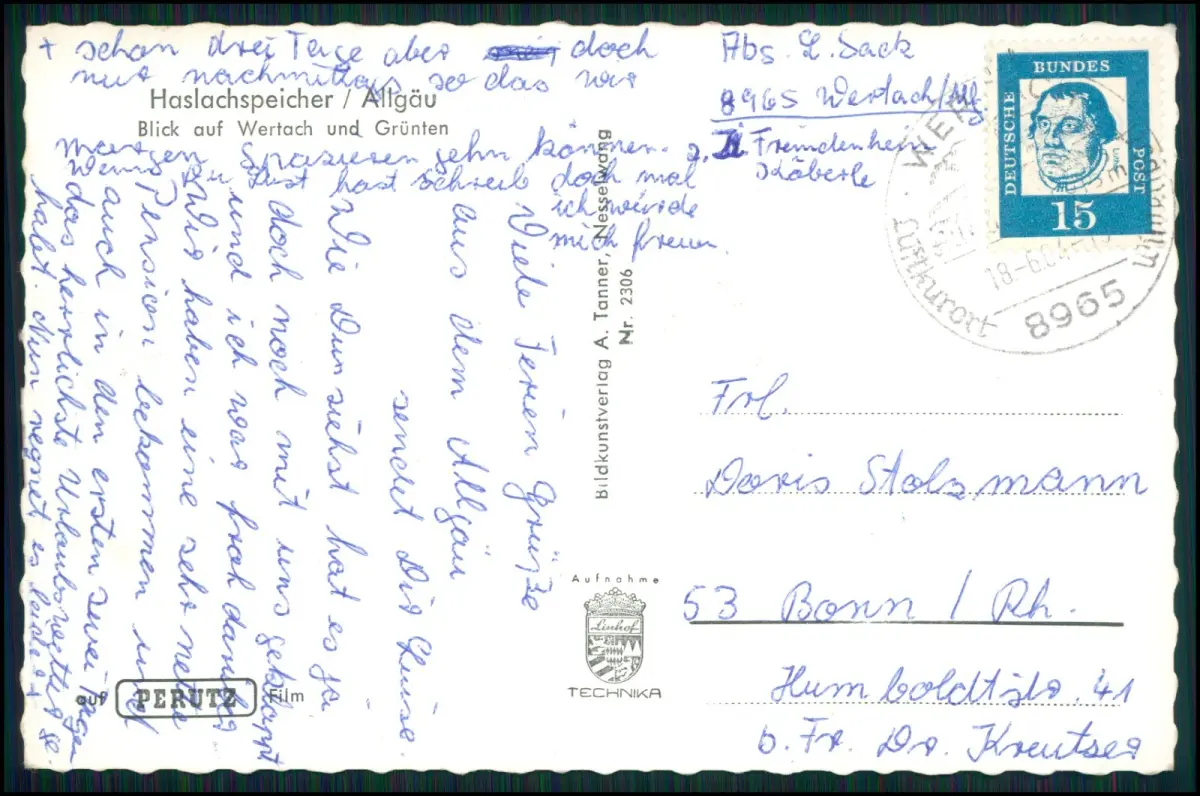 Haslachspeicher / Allgäu
Blick auf Wertach und Grünten
Viele Ferien Grüße
aus dem Allgäu
sendet Dir Luise.
Wie Du nun siehst hat es ja
doch noch mit uns geklappt
und ich war froh darüber
Wir haben eine sehr nette
Pension bekommen und
auch in den ersten zwei Tagen
das herrlichste Urlaubswetter ge-
habt. Nun regnet es leider
+ schon drei Tage aber doch
nur nachmittags so das wir
morgens spazieren gehn können.
Wenn Du Lust hast schreib doch mal
ich würde
mich freun.
Bildkunstverlag A. Tanner, Nesselwang
Nr. 2306
Aufnahme
Linhof
TECHNIKA
auf PERUTZ Film
Abs. L. Sack
8965 Wertach/Allg.
z. Zt. Fremdenheim
Köberle
DEUTSCHE BUNDES POST
15
Luther
Luftkurort
18-6.64
8965
Frl.
Doris Stolzmann
53 Bonn / Rh.
Humboldtstr. 41
b. Fr. Dr. Kreutser